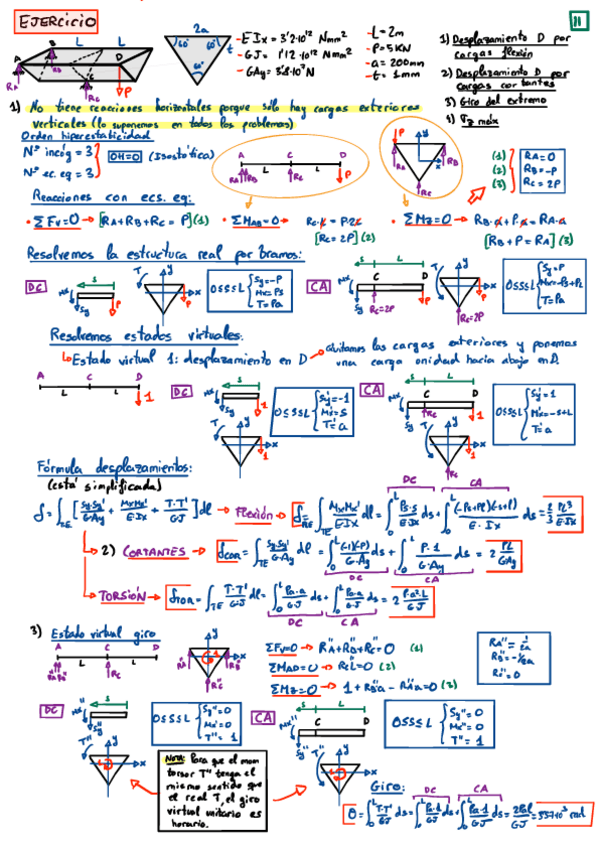 EJERCICIO
11
2a
60°
60°
60°
t
- EIx = 3'2·10¹² Nmm²
- GJ = 1'12·10¹² Nmm²
- GAy = 3'8·10⁷ N
- L = 2m
- P = 5KN
- a = 200mm
- t = 1mm
1) Desplazamiento D por cargas flexión
2) Desplazamiento D por cargas cortantes
3) Giro del extremo
4) τz max
1) No tiene reacciones horizontales porque solo hay cargas exteriores
verticales (lo suponemos en todos los problemas)
Orden hiperestaticidad
Nº incóg = 3
Nº ec. eq = 3
OH=0 (Isostática)
(1) RA = 0
(2) RB = -P
(3) RC = 2P
Reacciones con ecs. eq:
• ΣFv=0 → [RA+RB+RC = P] (1)
• ΣMAB=0 → RC·L = P·2L
[RC = 2P] (2)
• ΣMz=0 → RB·a + P·a = RA·a
[RB + P = RA] (3)
Resolvemos la estructura real por tramos:
DC
0≤s≤L
Sy=-P
Mx=Ps
T=Pa
CA
RC=2P
0≤s≤L
Sy=P
Mx=-Ps+PL
T=Pa
Resolvemos estados virtuales:
Estado virtual 1: desplazamiento en D → quitamos las cargas exteriores y ponemos
una carga unidad hacia abajo en D.
DC
0≤s≤L
Sy'=-1
Mx'=s
T'=a
CA
0≤s≤L
Sy'=1
Mx'=-s+L
T'=a
Fórmula desplazamientos:
(está simplificada)
δ = ∫TE [Sy·Sy'/G·Ay + Mx·Mx'/E·Ix + T·T'/G·J] dl → Flexión → δFLE = ∫TE Mx·Mx'/E·Ix dl = ∫₀ᴸ Ps·s/E·Ix ds + ∫₀ᴸ (-Ps+PL)(-s+L)/E·Ix ds = 2/3 PL³/E·Ix
DC
CA
2) CORTANTES → δCOR = ∫TE Sy·Sy'/G·Ay dl = ∫₀ᴸ (-1)(-P)/G·Ay ds + ∫₀ᴸ P·1/G·Ay ds = 2 PL/GAy
DC
CA
TORSIÓN → δTOR = ∫TE T·T'/G·J dl = ∫₀ᴸ Pa·a/G·J ds + ∫₀ᴸ Pa·a/G·J ds = 2 P·a²·L/G·J
DC
CA
3) Estado virtual giro
ΣFv=0 → RA''+RB''+RC''=0 (1)
ΣMAB=0 → RC·L=0 (2)
ΣMz=0 → 1+RB''a - RA''a=0 (3)
RA''= 1/2a
RB''=-1/2a
RC''=0
DC
0≤s≤L
Sy''=0
Mx''=0
T''=1
CA
0≤s≤L
Sy''=0
Mx''=0
T''=1
Nota: Para que el mom
torsor T'' tenga el
mismo sentido que
el real T, el giro
virtual unitario es
horario.
Giro:
DC
CA
θ = ∫₀ᴸ T·T''/G·J ds = ∫₀ᴸ Pa·1/G·J ds + ∫₀ᴸ Pa·1/G·J ds = 2PaL/GJ = 3'57·10⁻³ rad